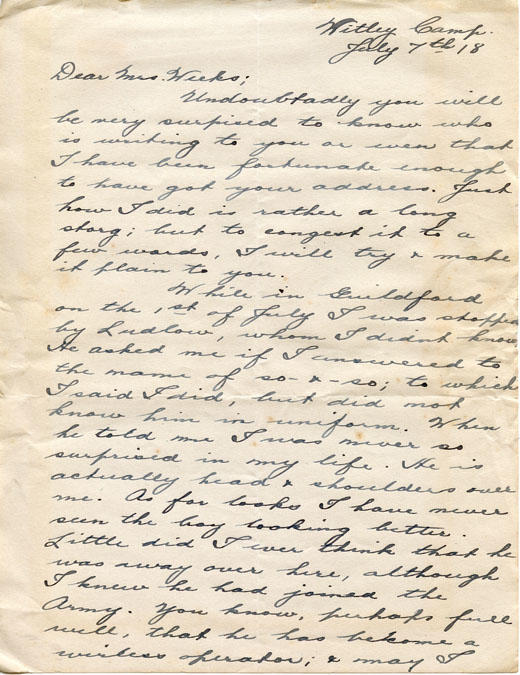 Witley Camp.
July 7th 18
Dear Mrs. Weeks;
Undoubtadly you will
be very surpised to know who
is writing to you or even that
I have been fortunate enough
to have got your address. Just
how I did is rather a long
story; but to congest it to a
few words, I will try & make
it plain to you.
While in Guildford
on the 1st of July I was stopped
by Ludlow, whom I didnt know
He asked me if I answered to
the name of so-&-so; to which
I said I did, but did not
know him in uniform. When
he told me I was never so
surprised in my life. He is
actually head & shoulders over
me. As for looks I have never
seen the boy looking better.
Little did I ever think that he
was away over here, although
I knew he had joined the
Army. You know, perhaps full
well, that he has become a
wirless operator; & may I